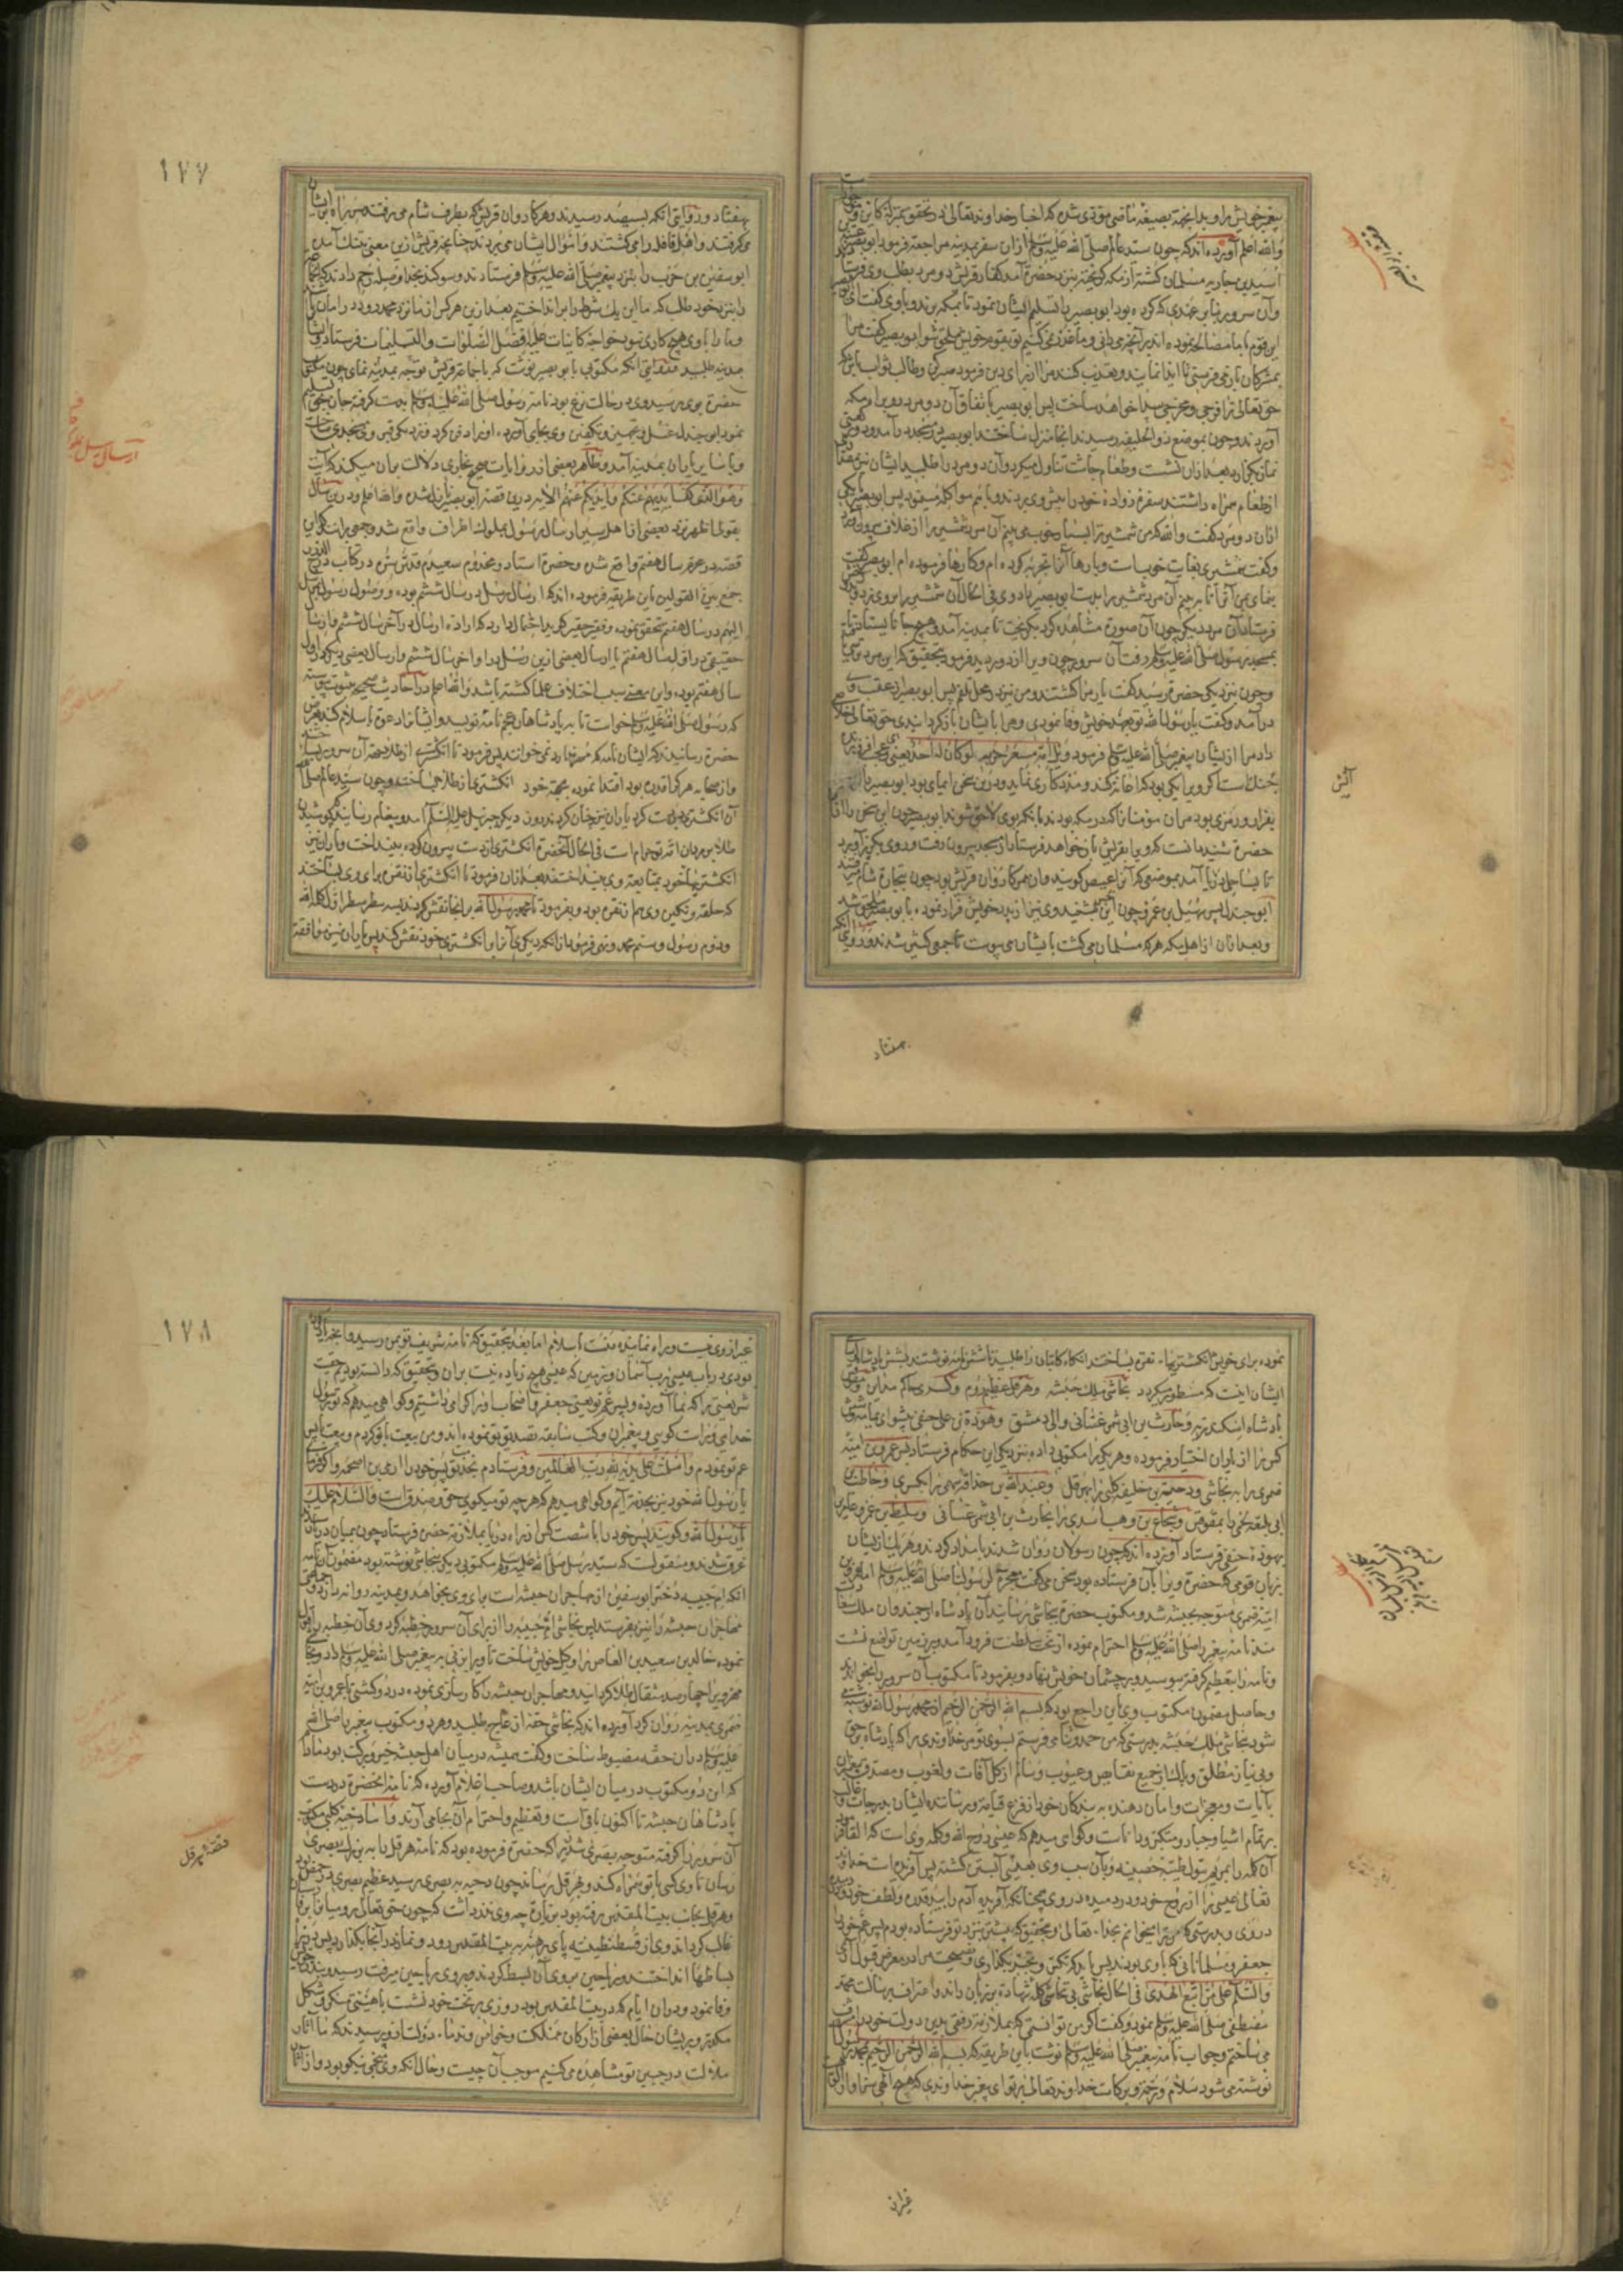 پیغمبر خویش را و بدانچه بصیغه ماضی مؤدی شده که اخبار خداوند تعالی در تحقق بمنزله کاین
والله اعلم آورده‌اند که چون سید عالم صلی الله علیه وسلم ازان سفر بمدینه مراجعة فرمود ابو بصیر
اسید بن جاریه مسلمان کشته از مکه کریخته بنزد حضرة آمد کفار قریش دو مرد بطلب وی
وآن سرور بنابر عهدی که کرده بود ابو بصیر را تسلیم ایشان نمود تا بمکه برند و با وی کفت
این قوم با ما مصالحه نموده‌اند بر آنچه می‌دانی و ما غدر نمی‌کنیم تو بقوم خویش ملحق شو ابو بصیر کفت مرا
بمشرکان باز می‌فرستی تا ایذا نمایند و تعذیب کنند مرا از برای دین فرمود صبر کن وطالب ثواب باش که
حق تعالی ترا فرجی ومخرجی پیدا خواهد ساخت پس ابو بصیر باتفاق آن دو مرد رو براه مکه
آوردند و چون بموضع ذو الحلیفه رسیدند انجا منزل ساختند ابو بصیر در مسجد در آمد و دو رکعتی
نماز بکزارد بعد ازان نشست وطعام چاشت تناول میکرد وآن دو مرد را طلبید ایشان نیز
از طعام همراه داشتند سفره زواده خود را پیش وی بردند و با هم مواکله میفرمودند پس ابو بصیر با یکی
ازان دو مرد کفت والله که من شمشیر ترا بسیار خوب می‌بینم آن مرد شمشیر را از غلاف بیرون
وکفت شمشیری بغایت خوب است و بارها آنرا تجربه کرده‌ام وکارها فرموده‌ام ابو بصیر کفت
بنمای بمن آنرا تا ببینم آن مرد شمشیر را بدست ابو بصیر داد وی فی الحال آن شمشیر را بر وی زد
فرستاد آن مرد دیکر چون آن صورة مشاهده کرد بکریخت تا بمدینه آمد و هیچ جا نایستاد تا
بمسجد نزد رسول صلی الله علیه وسلم رفت آن سرور چون ویرا از دور بدید فرمود بتحقیق که این مرد
وچون نزدیک حضرة رسید کفت یار مرا کشتند ومن نیز در محل تلفم پس ابو بصیر در عقب وی
در آمد وکفت یا رسول الله تو بعهد خویش وفا نمودی ومرا بایشان باز کردانیدی حق تعالی
داد مرا از ایشان پیغمبر صلی الله علیه وسلم فرمود ویل امه مسعر حرب لو کان له احد یعنی
جنک است اکر ویرا یکی بود که اعانة کند ومدد کاری نماید ودرین سخن ایمای بود ابو بصیر را
بفرار ورمزی بود مران مؤمنانرا که در مکه بودند بانکه بوی لاحق شوند ابو بصیر چون این سخن را از
حضرة شنید دانست که ویرا بقریش باز خواهد فرستاد از مسجد بیرون رفت
تا بساحل دریا آمد بموضعی که آنرا عیص کویند وان ممر کاروان قریش بود چون بتجارة شام
ابو جندل بن سهیل بن عمرو چون این بشنید وی نیز از بند خویش فرار نموده با ابو بصیر ملحق شد
وبعد ازان از اهل مکه هر که مسلمان می‌کشت بایشان می‌پیوست تا جمعی کثیر شدند
آتش
هفتاد
١٧٧
هفتاد ودر روایتی انکه بسیصد رسیدند وهر کاروان قریش که بطرف شام می‌رفت سر راه
می‌کرفتند واهل قافله را می‌کشتند واموال ایشان می‌بردند چنانچه قریش ازین معنی بتنک آمده
ابو سفین بن حرب را بنزد پیغمبر صلی الله علیه وسلم فرستادند وسوکند بخدا وصله رحم دادند که
را بنزد خود طلب که ما این یک شرط را بر انداختیم بعد ازین هر کس از ما نزد محمد رود در امان
وما را با وی هیچ کاری نبود خواجه کاینات علیه افضل الصلوات والتسلیمات فرستاد
بمدینه طلبید منقولست انکه مکتوبی بابو بصیر نوشت که با جماعة قریش توجه بمدینه نمای چون
حضرة بوی رسید وی در حالت نزع بود نامه رسول صلی الله علیه وسلم بدست کرفته جان
نمود ابو جندل غسل وتجهیز وتکفین وی بجای آورد اورا دفن کرد ونزدیک قبر وی مسجدی
وبا سایر یاران بمدینه آمد وظاهر بعضی از روایات صحیح بخاری دلالت بران میکند که آیت
وهو الذی کف ایدیهم عنکم وایدیکم عنهم الآیه در قصه ابو بصیر نازل شده والله اعلم ودرین سال
بقول اظهر نزد بعضی از اهل سیر ارسال رسول بملوک اطراف واقع شد وجمعی برانند که این
قصه در محرم سال هفتم واقع شده وحضرة استاد ومخدوم سعیدم قدس سره در کتاب
جمع بین القولین باین طریقه فرموده‌اند که ارسال رسل در سال ششم بوده ووصول رسول
الیهم در سال هفتم تحقق نموده وفقیر حقیر کوید احتمال دارد که اراده ارسال در آخر سال ششم
حقیقی در اول سال هفتم یا ارسال بعضی ازین رسل در اواخر سال ششم وارسال بعضی دیکر در اول
سال هفتم بوده واین معنی سبب اختلاف علما کشته باشد والله اعلم در احادیث صحیحه بثبوت پیوسته
که رسول صلی الله علیه وسلم خواست تا بپادشاهان عجم نامه نویسد وایشانرا دعوة باسلام کند
حضرة رسانیدند که ایشان نامه که مهر ندارد نمی‌خوانند پس فرمود تا انکشتری از طلا بجهة آن سرور
واز صحابه هر که را قدرة بود اقتدا نموده بجهة خود انکشتری از طلا بساخت وچون سید عالم صلی
آن انکشتری در دست کرد یاران نیز چنان کردند روز دیکر جبریل علیه السلام آمد وپیغام رسانید که پوشیدن
طلا بر مردان امة تو حرام است فی الحال آنحضرة انکشتری از دست بیرون کرده بینداخت ویاران نیز
انکشتریهای خود بمتابعت وی بینداختند بعد ازان فرمود تا انکشتری از نقره برای وی بساختند
که حلقه ونکین وی هم از نقره بود وبفرمود تا محمد رسول الله بر انجا نقش کردند بسه سطر سطر اول کلمه الله
ودوم رسول وسیم محمد ونهی فرمود ازانکه دیکری آنرا بر انکشتری خود نقش کند پس یاران نیز موافقة
ارسال رسل بملوک
نموده برای خویش انکشتریها از نقره بساختند انکاه کاتبان را طلبید تا شش نامه نوشتند بشش پادشاه
ایشان اینست که مسطور میکردد نجاشی ملک حبشه وهرقل عظیم روم وکسری حاکم مداین
پادشاه اسکندریه وحارث بن ابی شمر غسانی والی دمشق وهوذة بن علی حنفی پیشوای یمامه
کس را از یاران اختیار فرموده وهر یکی را مکتوبی داده بنزد یکی ازین حکام فرستاد پس عمرو بن امیه
ضمری را به نجاشی ودحیة بن خلیفه کلبی را بهرقل وعبد الله بن حذافه سهمی را بکسری وحاطب
ابی بلتعه لخمی را بمقوقس وشجاع بن وهب اسدی را بحارث بن ابی شمر غسانی وسلیط بن عمرو عامری
بهوذة حنفی فرستاد آورده‌اند که چون رسولان روان شدند بامداد کردند وهر یک از ایشان
بزبان قومی که حضرة ویرا بآن فرستاده بود سخن می‌کفت معجزة لرسولنا صلی الله علیه وسلم اما عمرو بن
امیه ضمری متوجه حبشه شد ومکتوب حضرة بنجاشی رسانید آن پادشاه ارجمند وان ملک
مند نامه پیغمبر را صلی الله علیه وسلم احترام نموده از تخت سلطنت فرود آمد وبر زمین تواضع نشست
ونامه را بتعظیم کرفته ببوسید وبر چشمان خویش نهاد وبفرمود تا مکتوب آن سرور را بخوانند
وحاصل مضمون مکتوب بمعانی راجع بود که بسم الله الرحمن الرحیم از محمد رسول الله نوشته می
شود بنجاشی ملک حبشه بدرستی که من حمد وثنا می فرستم بسوی تو مر خداوندی را که پادشاه بحق
وبی نیاز مطلق وپاک از جمیع نقایص وعیوب وسالم از کل آفات ولغوب ومصدق
بآیات ومعجزات وامان دهنده به بندکان خود از فزع قیامة ورساننده ایشان بدرجات
بر تمام اشیا وجبار ومتکبر ودانا است وکواهی میدهم که عیسی روح الله وکلمه وی است که القا
آن کلمه را بمریم بتول طیبه حصینه وبآن سبب وی بعیسی آبستن کشته پس آفریده است خدای
تعالی عیسی را از روح خود ودر دمیده در وی همچنانکه آفریده آدم را بید قدرة ولطف خود
در وی وبدرستی که من ترا میخوانم بخدا تعالی وبتحقیق که پیشتر بنزد تو فرستاده بودم پسر عم خود
جعفر ومسلمانانی که با وی بودند پس باید که تکبر وتجبر بکذاری ونصیحت مرا در معرض قبول
والسلام علی من اتبع الهدی فی الحال نجاشی بی تحاشی کلمه شهادة بر زبان راند واعتراف برسالت محمد
مصطفی صلی الله علیه وسلم نمود وکفت اکر من توانستمی که بملازمة رفتمی بدین دولت خود را
می‌ساختم وجواب نامه پیغمبر صلی الله علیه وسلم نوشت باین طریقه که بسم الله الرحمن الرحیم محمد رسول
نوشته می شود سلام ورحمة وبرکات خداوند تعالی بر تو ای پیغمبر خداوندی که هیچ الهی سزاوار
١٧٨
غیر از وی نیست ومرا راه نماینده منست باسلام اما بعد بتحقیق که نامه شریف تو بمن رسید
نموده بودی در باب عیسی برب آسمان وزمین که عیسی هیچ زیاده نیست بران وبتحقیق که دانسته بودم
شریعتی ترا که بما آورده وپسر عم تو یعنی جعفر واصحاب او را کرامی داشتیم وکواهی میدهم که تو رسول
خدای وراست کوی وپیغمبران وکتب سابقه تصدیق تو نموده‌اند ومن بیعت با تو کردم وبیعت با پسر
عم تو نمودم واسلمت علی یدیه لله رب العالمین وفرستادم بخدمت تو پسر خود را ارمی بن اصحمه واکر فرمای
یا رسول الله خود نیز بخدمة آیم وکواهی میدهم که هر چه تو میکوی حق وصدق است والسلام علیک
یا رسول الله وکویند پسر خود را با شصت کس از راه دریا بملازمة حضرة فرستاد چون بمیان دریا
غرق شدند ومنقولست که سید رسل صلی الله علیه وسلم مکتوبی دیکر بنجاشی نوشته بود مضمون آن نامه
انکه ام حبیبه دختر ابو سفین از مهاجران حبشه است برای وی بخواهد وبمدینه روانه دارد
مهاجران حبشه را نیز بفرستد پس نجاشی ام حبیبه را از برای آن سرور خطبه کرد وی آن خطبه را قبول
نموده خالد بن سعید بن العاص را وکیل خویش ساخت تا ویرا بزنی به پیغمبر صلی الله علیه وسلم داد
مهر ویرا چهار صد مثقال طلا کردانید ومهاجران حبشه را کار سازی نموده در دو کشتی با عمرو بن امیه
ضمری بمدینه روان کرد آورده‌اند که نجاشی حقه از عاج طلبید وهر دو مکتوب پیغمبر را صلی الله
علیه وسلم دران حقه مضبوط ساخت وکفت همیشه در میان اهل حبشه خیر وبرکت بود مادام
که این دو مکتوب در میان ایشان باشد وصاحب اعلام آورده که نامه آنحضرة در دست
پادشاهان حبشه تا اکنون باقی است وتعظیم واحترام آن بجا می آرند واما دحیه کلبی مکتوب
آن سرور را کرفته متوجه بصری شد زیرا که حضرة فرموده بود که نامه هرقل را به بزرک بصری
رسان تا وی کسی با تو همراه کند وبهرقل رساند چون دحیه به بصری رسید عظیم بصری در حمص بود
وهرقل بجانب بیت المقدس رفته بود بنابر آنچه وی نذر داشت که چون حق تعالی رومیانرا بر
غالب کرداند وی از قسطنطنیه پای برهنه به بیت المقدس رود ونماز در آنجا بکذارد پس
بساطها انداختند وریاحین بر وی آن بسط کردند وبر وی ریاحین میرفت رسید
وفا نمود ودران ایام که در بیت المقدس بود روزی بر تخت خود نشست با هیئتی منکر وشکل
مکدر وپریشان حال بعضی از ارکان مملکت وخواص وندما دولت از وی پرسیدند که ما آثار
ملالت در جبین تو مشاهده می‌کنیم موجب آن چیست وحال آنکه وی منجمی نیکو بود واز
قصه هرقل
غیر از